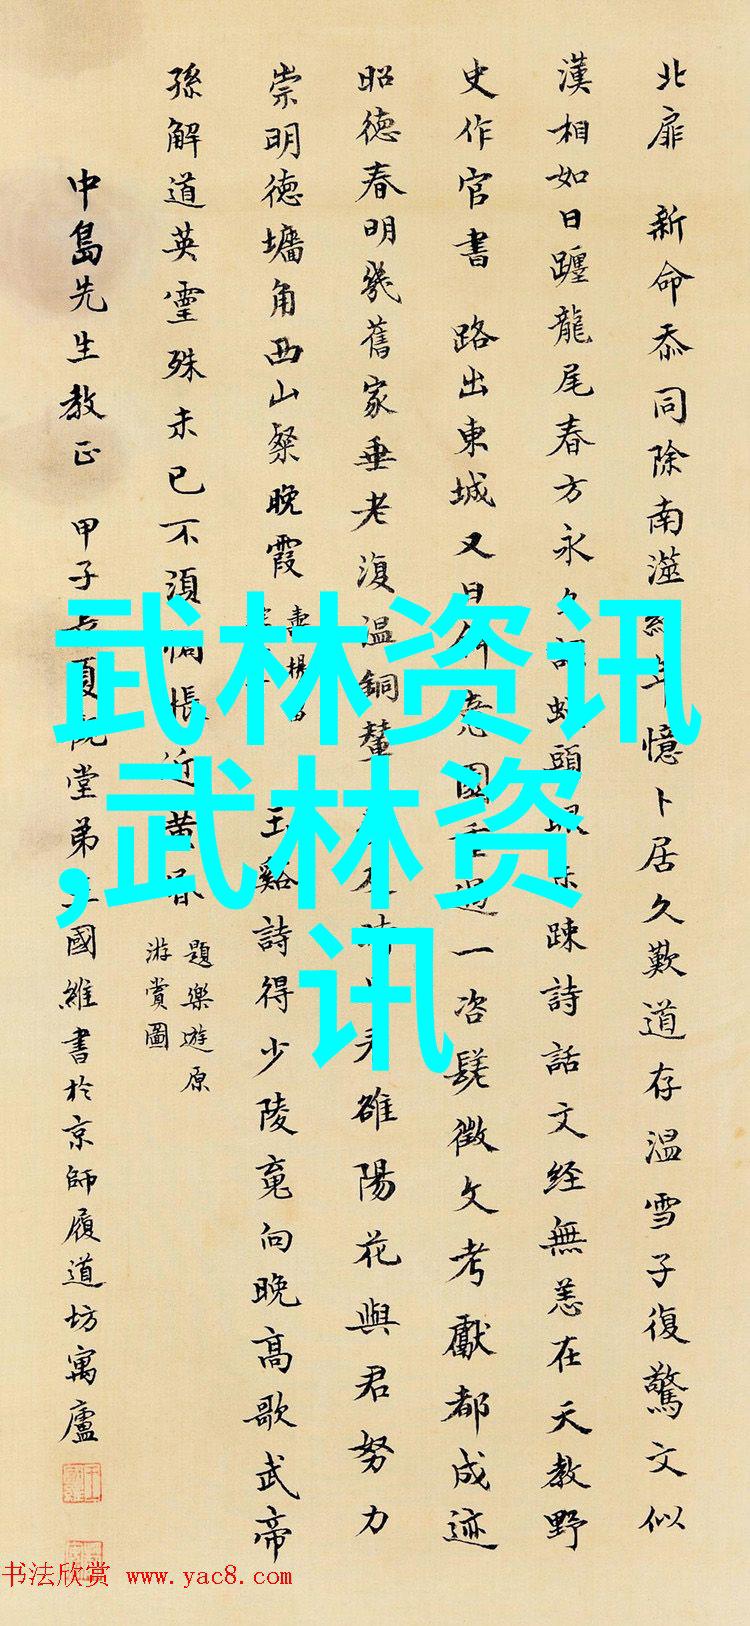 北扉 新命忝同除南澨經年憶卜居久歎道存温雪子復驚文似
漢相如日躔龍尾春方永 頭 疎詩話文經無恙在天教野
史作官書 路出東城又日 過一咨嗟徵文考獻都成迹
昭德春明幾舊家垂老復温銅輦 雒陽花與君努力
崇明德墉角西山粲晚霞
壽楊
玉谿詩得少陵竟向晚高歌武帝
孫解道英靈殊未已不須惆悵近黄昏
題樂遊原
游賞圖
中島先生教正 甲子 夏 堂弟王國維書於京師履道坊寓廬
武林资讯
,武林资
讯
书法欣赏 www.yac8.com